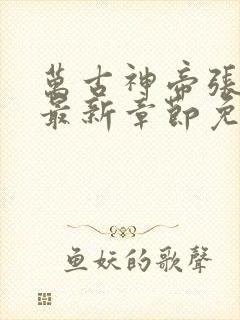 萬古神帝張
最新章節免
鱼妖的歌聲